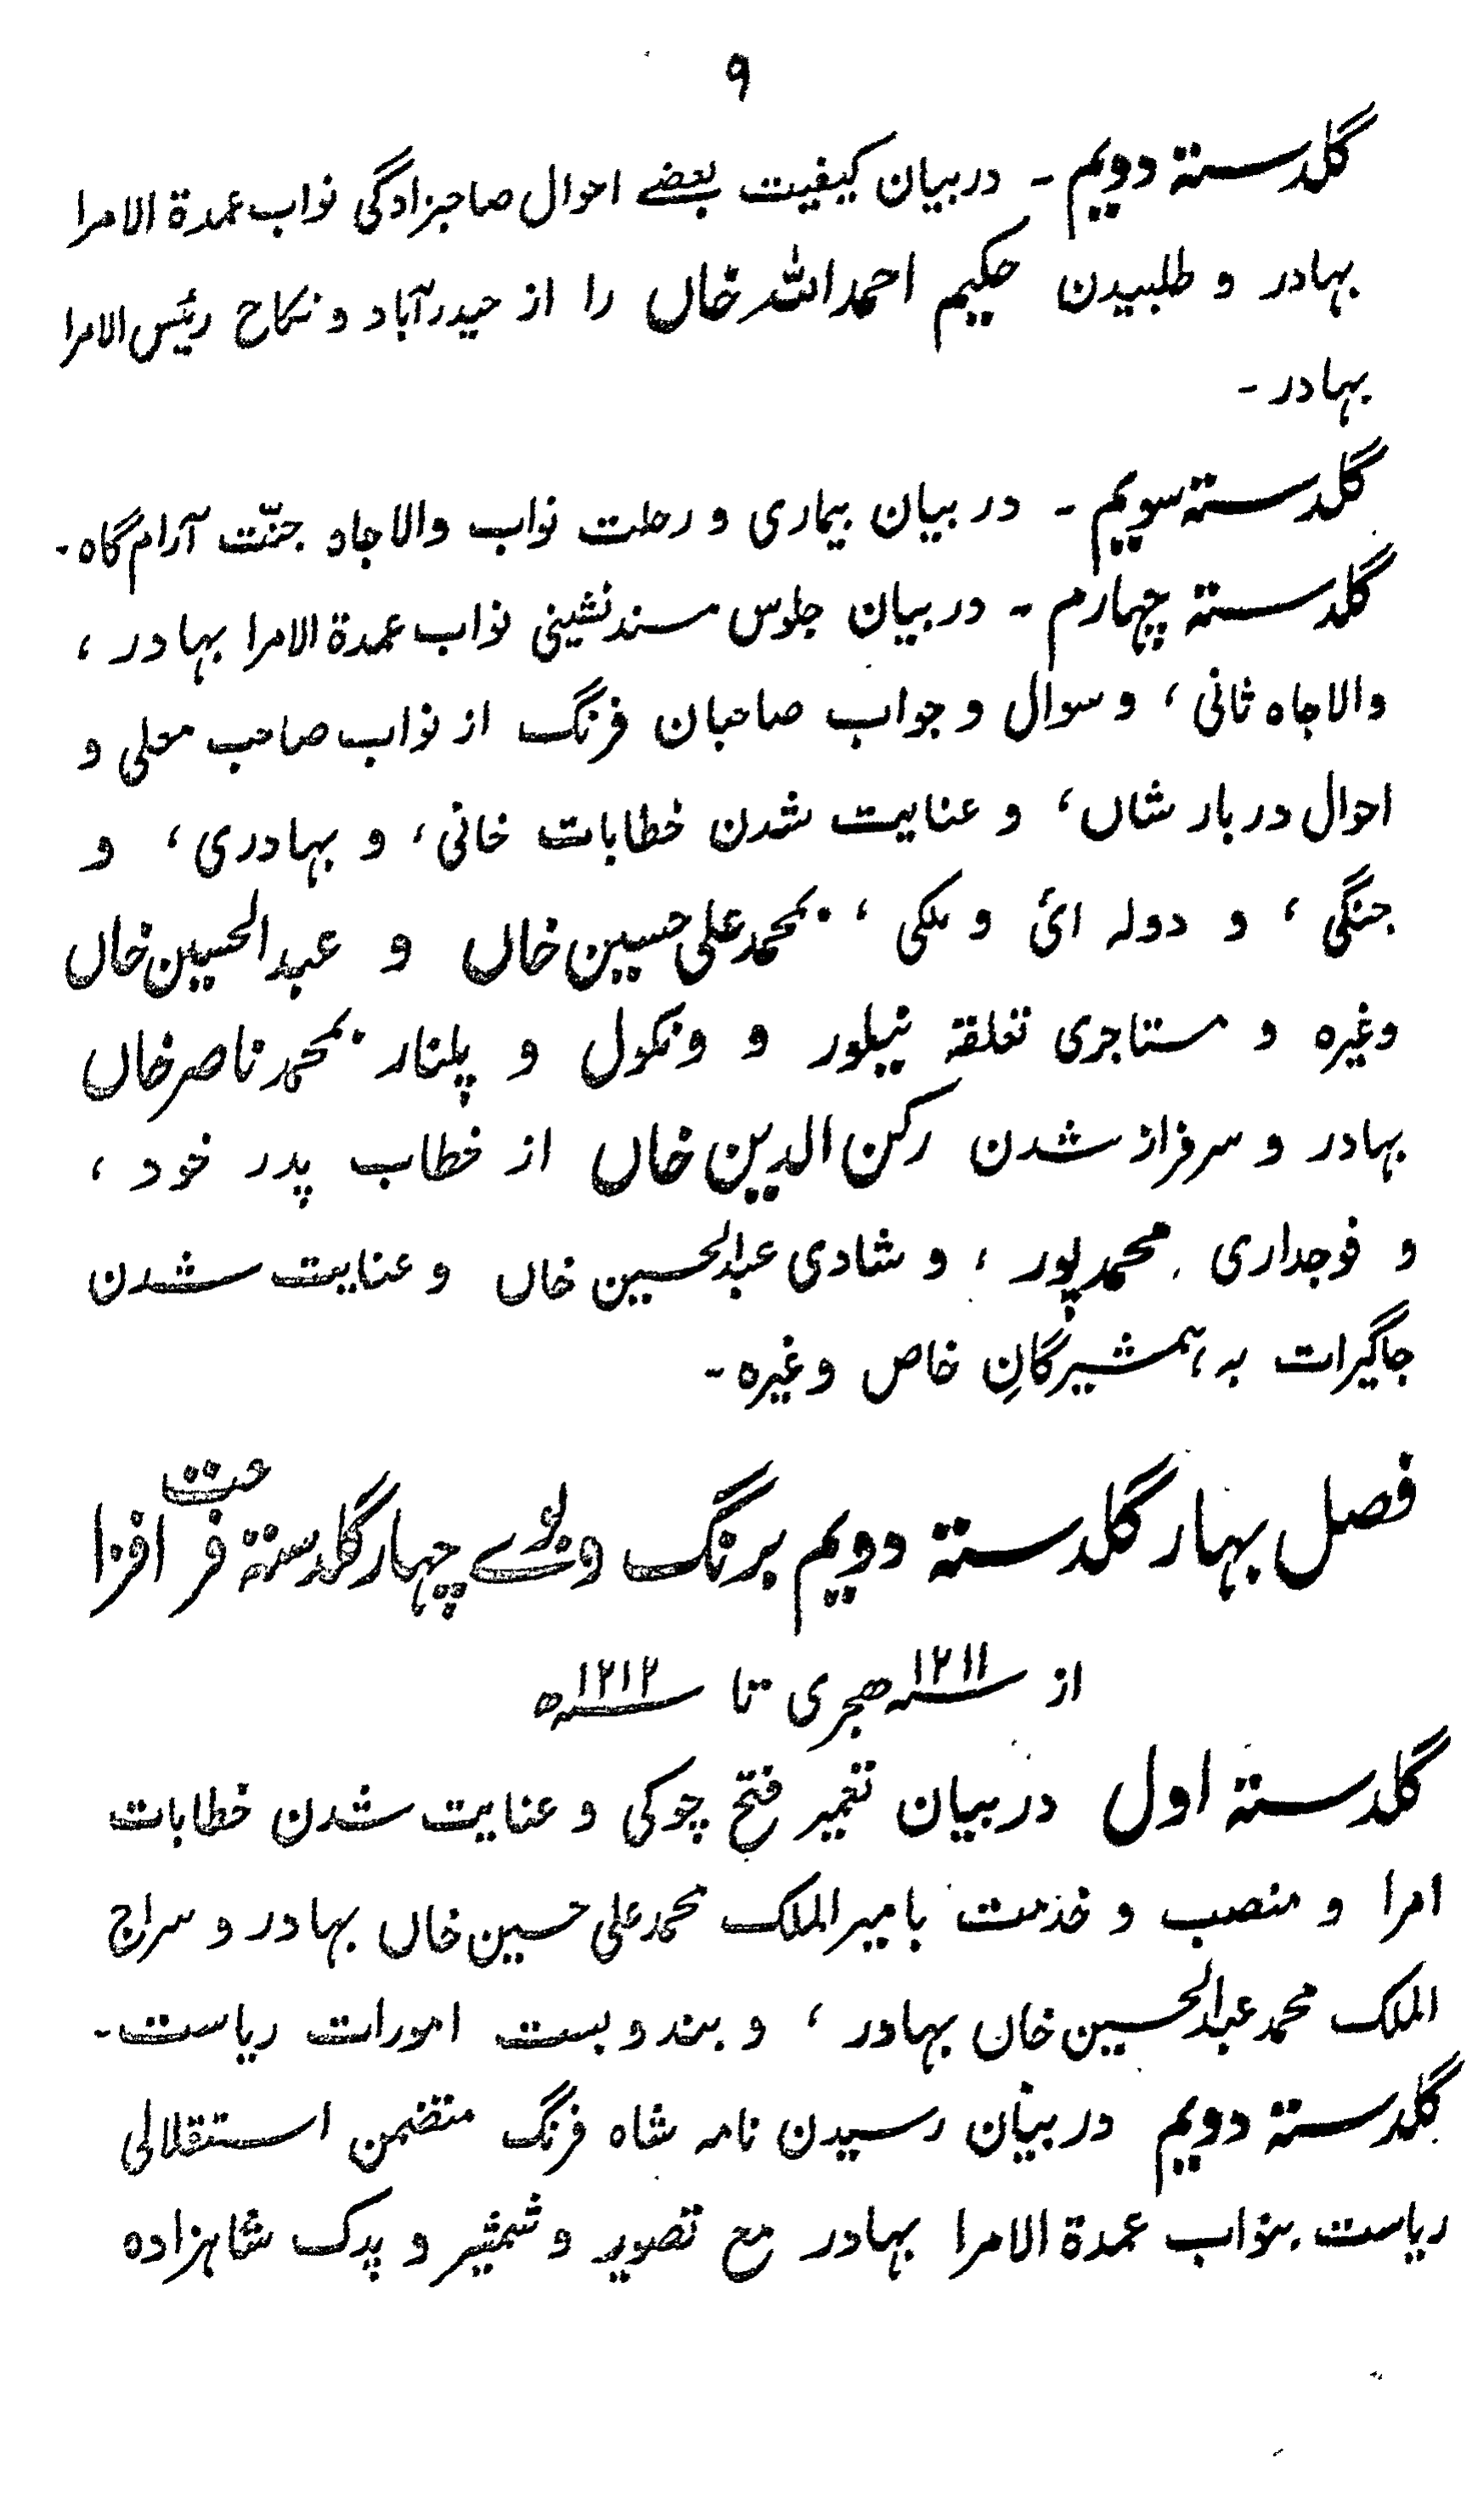 ۹
گلدستۂ دویم ۔ در بیان کیفیت بعضے احوال صاحبزادگی نواب عمدۃ الامرا
بہادر و طلبیدن حکیم احمد اللہ خاں را از حیدرآباد و نکاح رئیس الامرا
بہادر ۔
گلدستۂ سویم ۔ در بیان بیماری و رحلت نواب والاجاہ جنّت آرام گاہ ۔
گلدستۂ چہارم ۔ در بیان جلوس مسند نشینی نواب عمدۃ الامرا بہادر ،
والاجاہ ثانی ، و سوال و جواب صاحبان فرنگ از نواب صاحب معلی و
احوال دربار شاں ، و عنایت شدن خطابات خانی ، و بہادری ، و
جنگی ، و دولہ ائ و ملکی ، بمحمد علی حسین خاں و عبد الحسین خاں
وغیرہ و مستاجری تعلقہ نیلور و ونکول و پلنار بمحمد ناصر خاں
بہادر و سرفراز شدن رکن الدین خاں از خطاب پدر خود ،
و فوجداری محمد پور ، و شادی عبدالحسین خاں و عنایت شدن
جاگیرات بہ ہمشیرگانِ خاص وغیرہ ۔
فصل بہار گلدستۂ دویم برنگ و بوئے چہار گلدستۂ فرحت افزا
از سنہ ۱۲۱۱ ہجری تا سنہ ۱۲۱۲ ھ
گلدستۂ اول در بیان تعمیر فتح چوکی و عنایت شدن خطابات
امرا و منصب و خدمت بامیر الملک محمد علی حسین خاں بہادر و سراج
الملک محمد عبدالحسین خاں بہادر ، و بندوبست امورات ریاست ۔
گلدستۂ دویم در بیان رسیدن نامہ شاہ فرنگ متضمن استقلالی
ریاست بنواب عمدۃ الامرا بہادر مع تصویر و شمشیر و پدک شاہزادہ